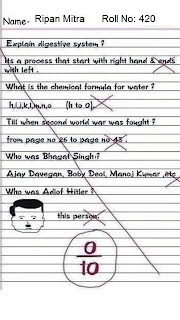 Name- Ripan Mitra Roll No: 420
Explain digestive system ?
Its a process that start with right hand & ends
with left .
What is the chemical formula for water ?
h,i,j,k,l,m,n,o (h to o)
Till when second world war was fought ?
from page no 26 to page no 43 .
Who was Bhagat Singh ?
Ajay Davegan, Boby Deol, Manoj Kumar ,etc
Who was Adlof Hitler ?
this person.
0
10